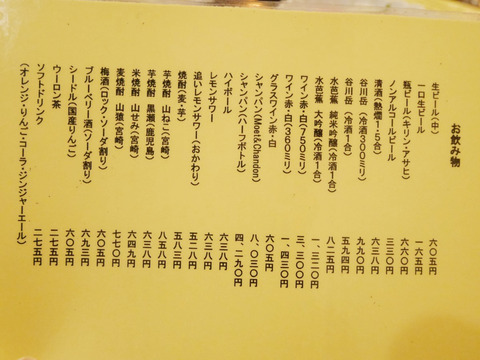 お飲み物
生ビール(中) 六〇五円
一口生ビール 一六五円
瓶ビール(キリン・アサヒ) 六六〇円
ノンアルコールビール 三三〇円
清酒(熱燗1・5合) 六三八円
谷川岳 (冷酒300ミリ) 九九〇円
谷川岳 (冷酒1合) 五九四円
水芭蕉 純米吟醸(冷酒1合) 八二五円
水芭蕉 大吟醸(冷酒1合) 一、三二〇円
ワイン赤・白(750ミリ) 三、三〇〇円
ワイン赤・白(360ミリ) 一、四三〇円
グラスワイン赤・白 六〇五円
シャンパン(Moet&Chandon) 八、〇三〇円
シャンパン(ハーフボトル) 四、二九〇円
ハイボール 六三八円
レモンサワー 六三八円
追いレモンサワー(おかわり) 五二八円
焼酎(麦・芋) 五八三円
芋焼酎 山ねこ(宮崎) 八五八円
芋焼酎 黒瀬(鹿児島) 六三八円
米焼酎 山せみ(宮崎) 六四九円
麦焼酎 山猿(宮崎) 七七〇円
梅酒(ロック・ソーダ割り) 六〇五円
ブルーベリー酒(ソーダ割り) 六九三円
シードル(国産りんご) 六〇五円
ウーロン茶 二七五円
ソフトドリンク 二七五円
(オレンジ・りんご・コーラ・ジンジャーエール)